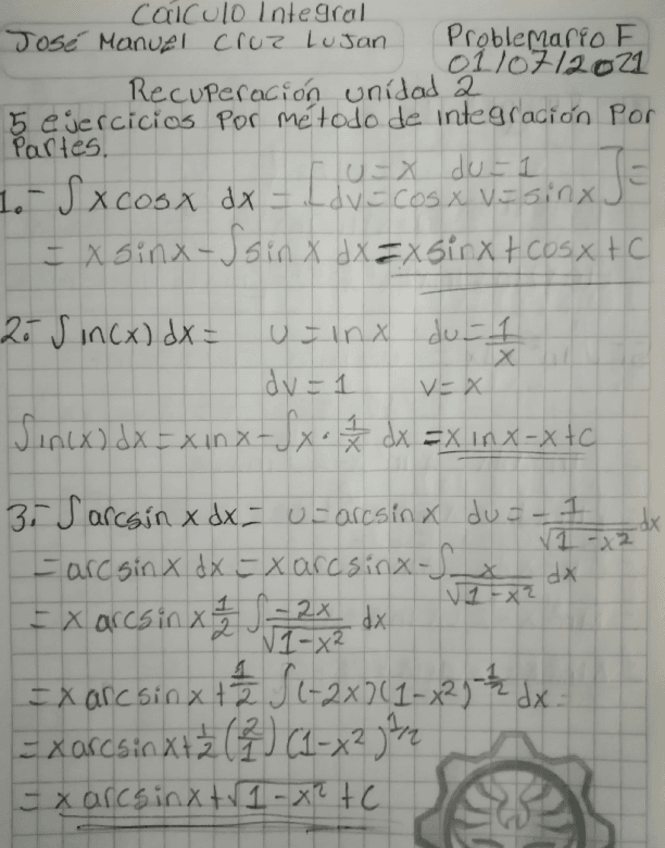 Cálculo Integral
José Manuel Cruz Lujan Problemario F
01/07/2021
Recuperación unidad 2
5 ejercicios por método de integración Por
Partes.
1.- ∫ x cosx dx = [u=x du=1
dv=cosx v=sinx] =
= x sinx - ∫sinx dx = x sinx + cosx + C
2.- ∫ ln(x) dx = u = lnx du = 1/x
dv = 1 v = x
∫ln(x) dx = x lnx - ∫x · 1/x dx = x lnx - x + C
3.- ∫ arcsin x dx = u = arcsinx du = -1/√(1-x²) dx
= arcsinx dx = x arcsinx - ∫ x/√(1-x²) dx
= x arcsinx 1/2 ∫ -2x/√(1-x²) dx
= x arcsinx + 1/2 ∫(-2x)(1-x²)^(-1/2) dx =
= x arcsinx + 1/2 (2/1) (1-x²)^(1/2)
= x arcsinx + √(1-x²) + C